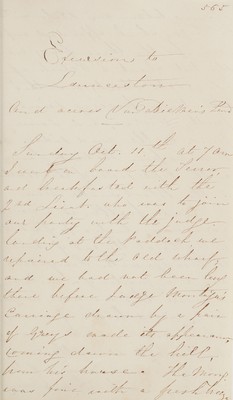 565
Excursion to
Launceston
And across Van Diemen's Land
Sunday Oct. 11th at 7 am
I went on board the Terror
and breakfasted with the
2nd Lieut. who was to join
our party with the judge.
landing at the Paddock we
repaired to the old wharf
and we had not been long
there before Judge Montagu's
Carriage drawn by a pair
of Greys made its appearance
coming down the hill
from his house. The morng
was fine with a fresh